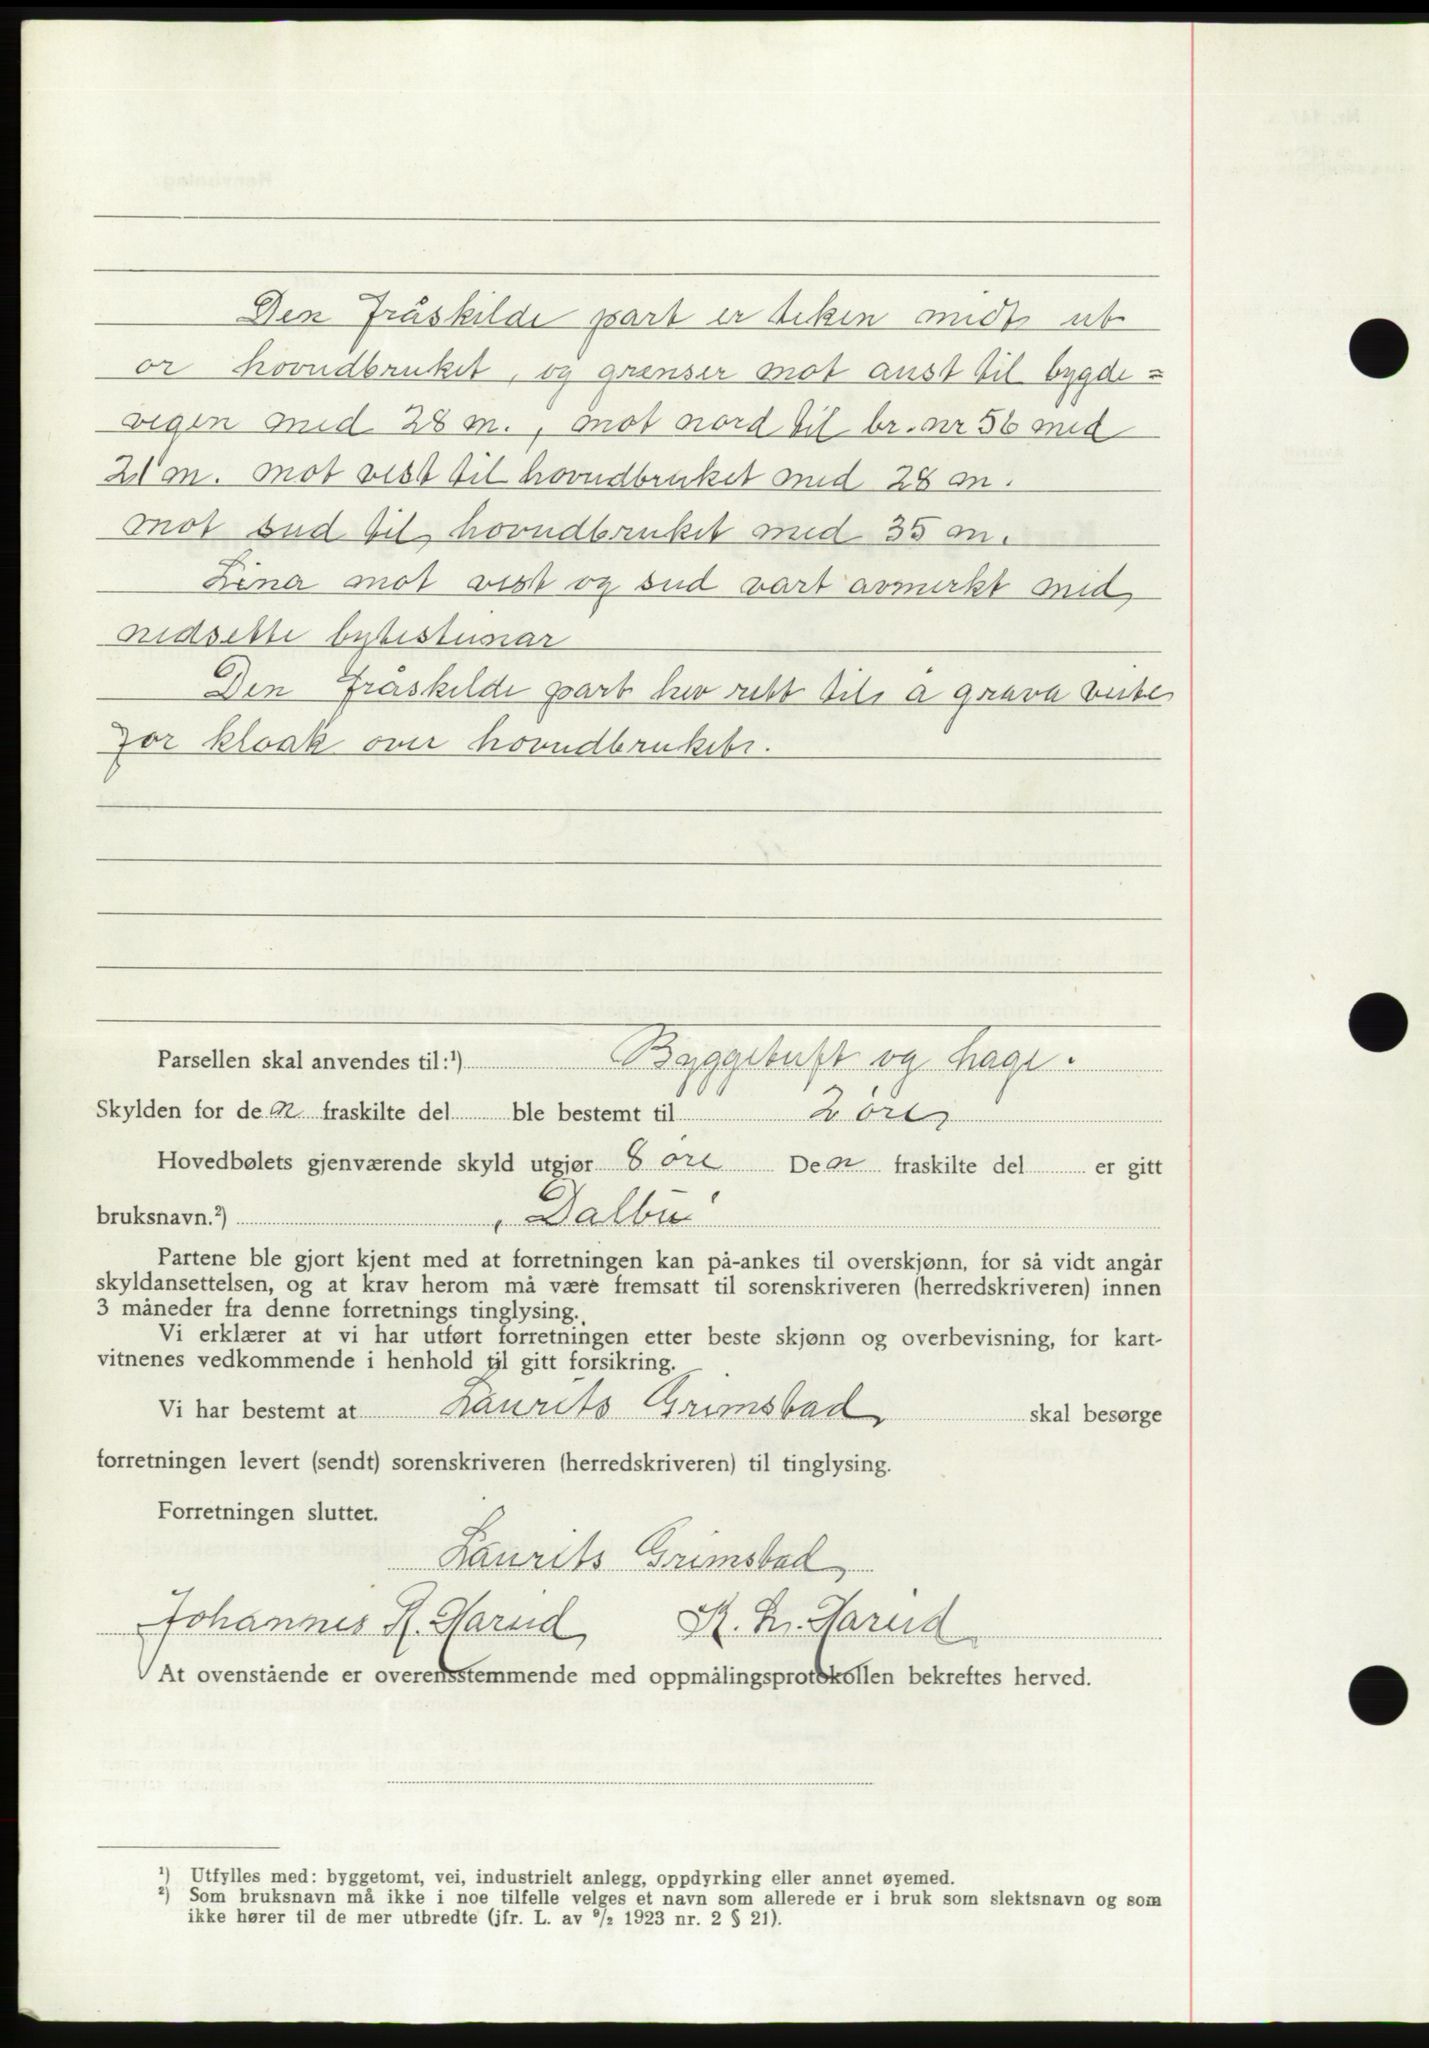 Den fråskilde part er teken midt ut
or hovudbruket, og grenser mot aust til bygde=
vegen med 28 m., mot nord til br. nr 56 med
21 m. mot vest til hovudbruket med 28 m.
mot sud til hovudbruket med 35 m.
Lina mot vest og sud vart avmerkt med
nedsette bytesteinar
Den fråskilde part hev rett til å grava veite
for kloak over hovudbruket.
Parsellen skal anvendes til:¹) Byggetuft og hage.
Skylden for den fraskilte del ble bestemt til 2 øre
Hovedbølets gjenværende skyld utgjør 8 øre Den fraskilte del er gitt
bruksnavn.²) "Dalbu"
Partene ble gjort kjent med at forretningen kan på-ankes til overskjønn, for så vidt angår
skyldansettelsen, og at krav herom må være fremsatt til sorenskriveren (herredskriveren) innen
3 måneder fra denne forretnings tinglysing.
Vi erklærer at vi har utført forretningen etter beste skjønn og overbevisning, for kart-
vitnenes vedkommende i henhold til gitt forsikring.
Vi har bestemt at Laurits Grimstad skal besørge
forretningen levert (sendt) sorenskriveren (herredskriveren) til tinglysing.
Forretningen sluttet.
Laurits Grimstad
Johannes R. Hareid K. L. Hareid
At ovenstående er overensstemmende med oppmålingsprotokollen bekreftes herved.
¹) Utfylles med: byggetomt, vei, industrielt anlegg, oppdyrking eller annet øyemed.
²) Som bruksnavn må ikke i noe tilfelle velges et navn som allerede er i bruk som slektsnavn og som
ikke hører til de mer utbredte (jfr. L. av ⁹/₂ 1923 nr. 2 § 21).